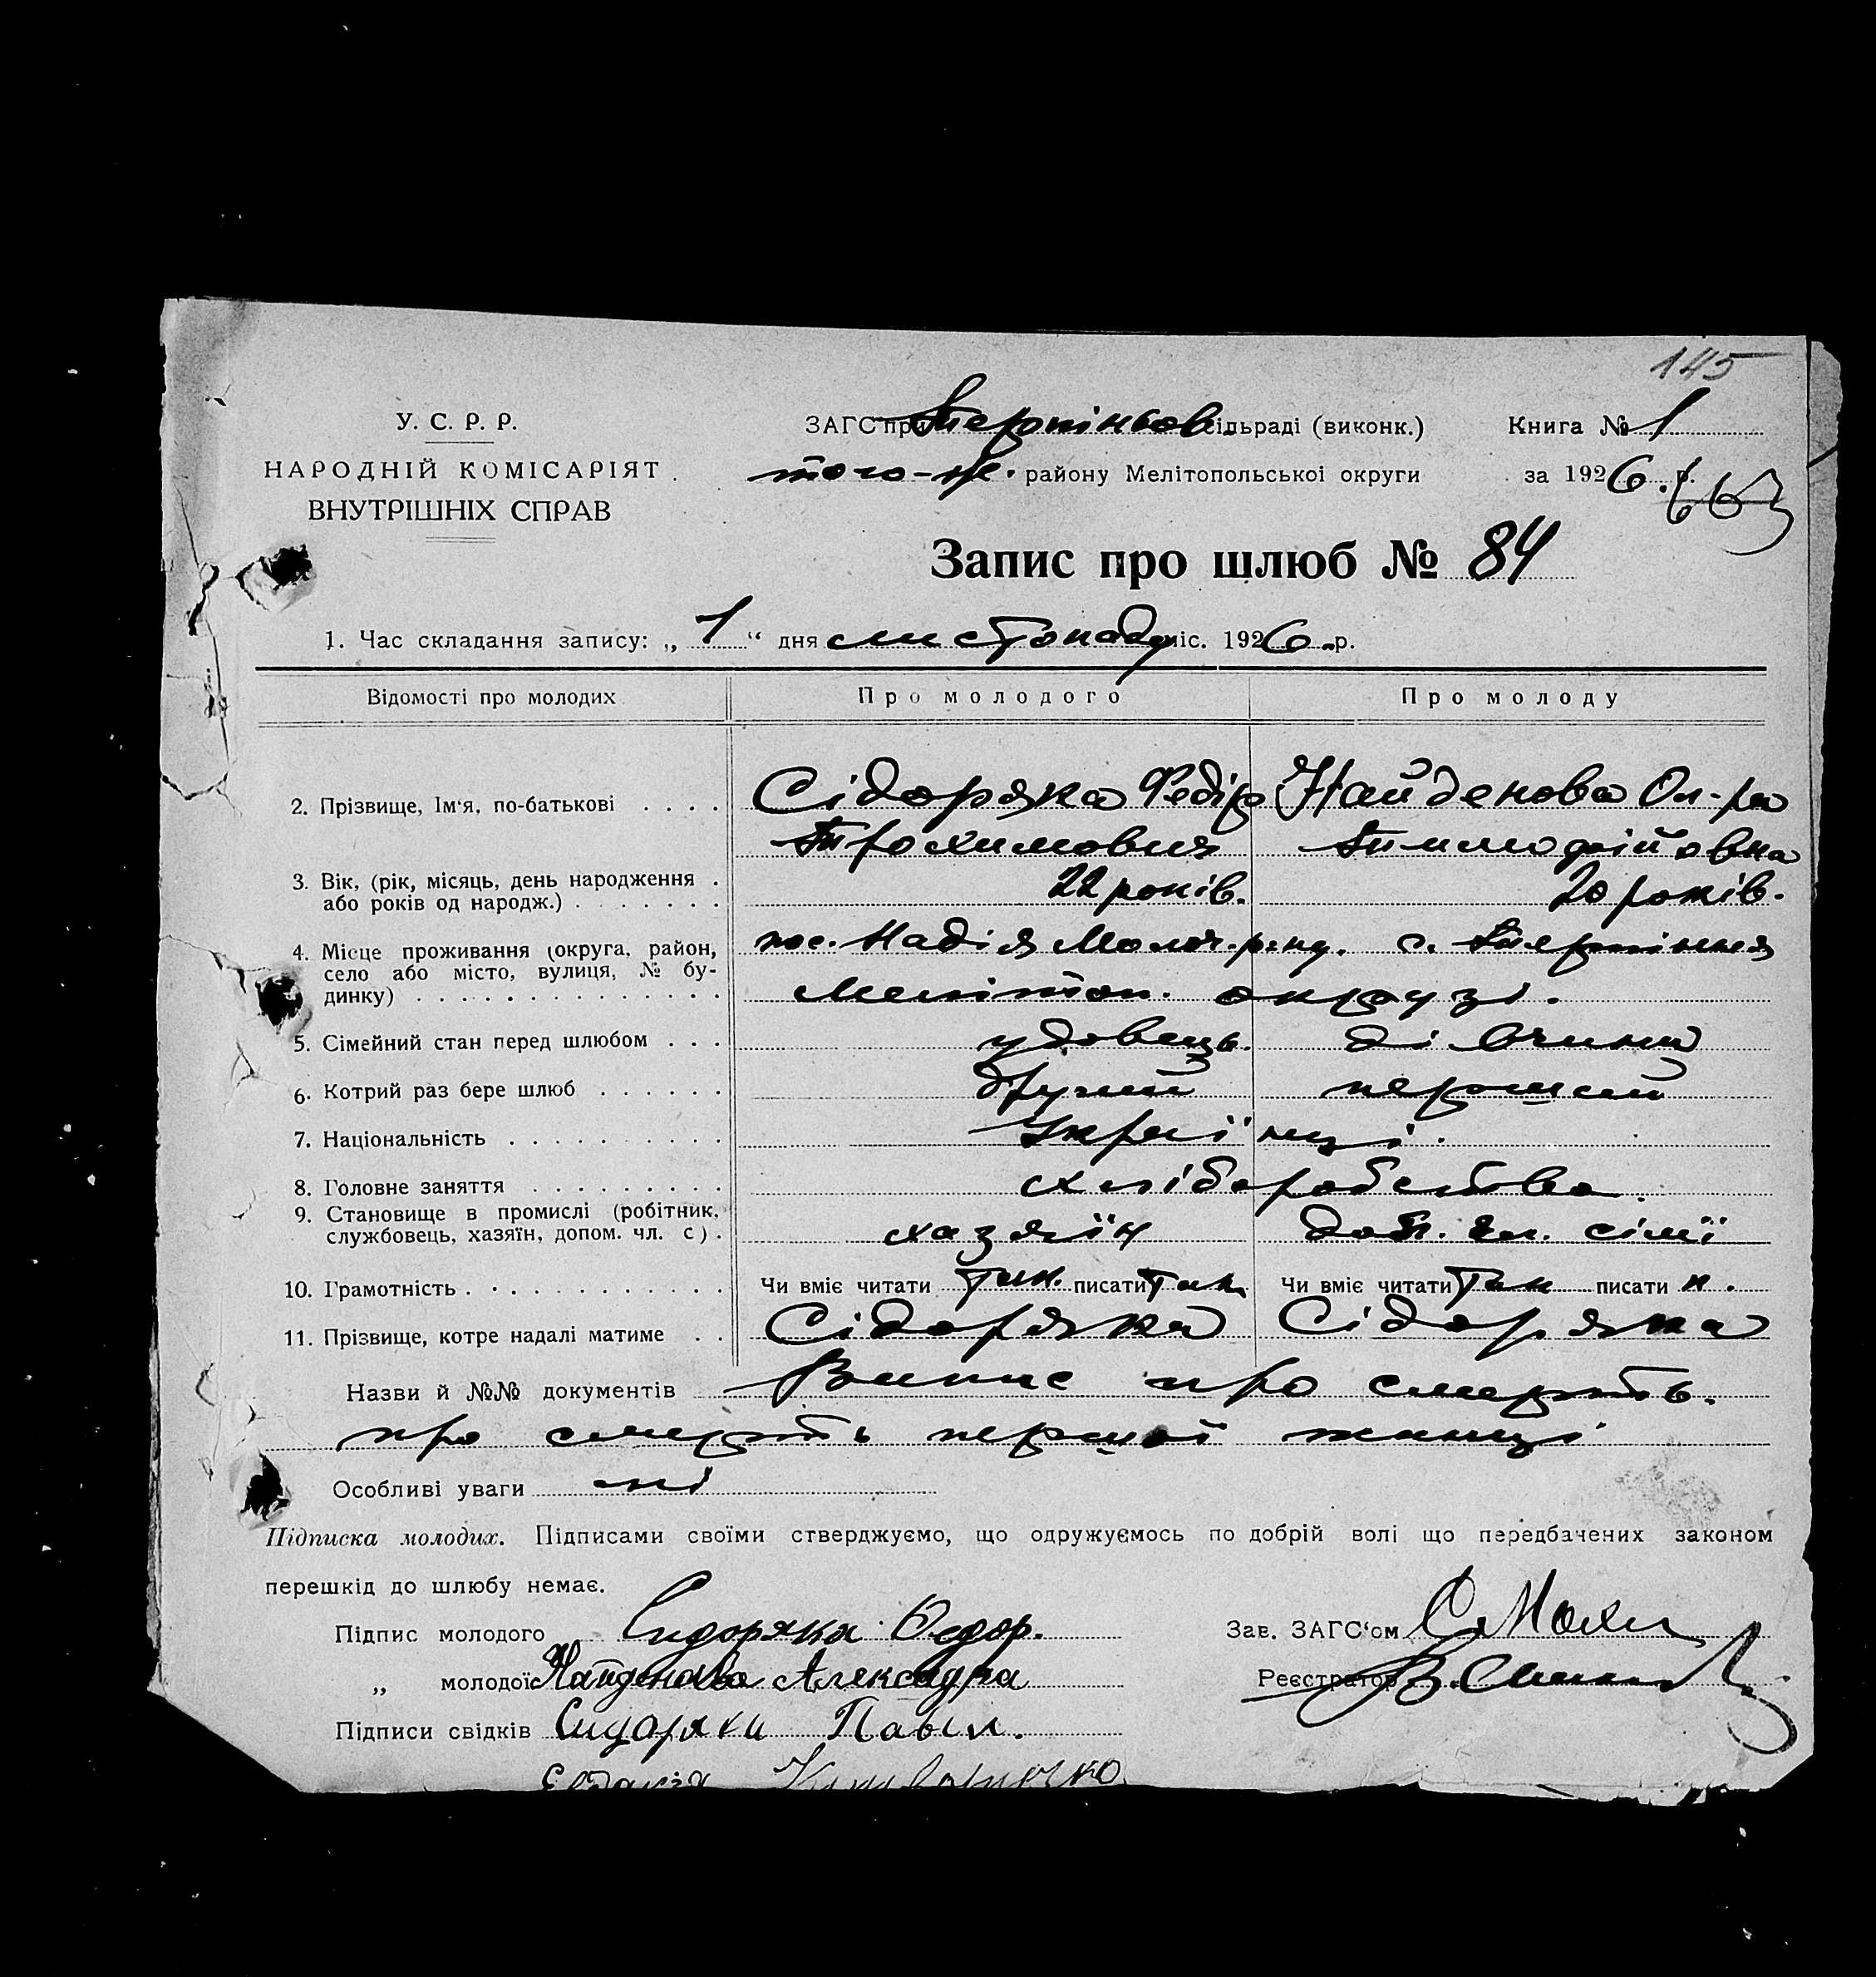 145
У. С. Р. Р.
НАРОДНІЙ КОМІСАРІЯТ
ВНУТРІШНІХ СПРАВ
ЗАГС при Терпіньов. сільраді (виконк.)
того-ж. району Мелітопольської округи
Книга № 1
за 1926. р.
Запис про шлюб № 84
1. Час складання запису: „ 1 “ дня листопаду міс. 1926. р.
Відомості про молодих Про молодого Про молоду
2. Прізвище, Ім‘я, по-батькові . . . . Сідоряка Федір Найденова Ол-ра
Трохимович Тимофійовна
3. Вік, (рік, місяць, день народження . 22 років. 20 років.
або років од народж.) . . . . . . .
4. Місце проживання (округа, район, пос. Надія Молоч. р-ну. с. Терпіння
село або місто, вулиця, № бу-
динку) . . . . . . . . . . . . . . Меліtоп. округзі.
5. Сімейний стан перед шлюбом . . . удовець. дівчина
6. Котрий раз бере шлюб . . . . . . другий перший
7. Національність . . . . . . . . . . Українці.
8. Головне заняття . . . . . . . . . хліборобство.
9. Становище в промислі (робітник,
службовець, хазяїн, допом. чл. с) . хазяїн доп. чл. сімї
10. Грамотність . . . . . . . . . . . . Чи вміє читати так. писати так Чи вміє читати так писати н.
11. Прізвище, котре надалі матиме . . Сідоряка Сідоряка
Назви й №№ документів Випис про смерть.
про смерть першої жинці
Особливі уваги ні
Підписка молодих. Підписами своїми стверджуємо, що одружуємось по добрій волі що передбачених законом
перешкід до шлюбу немає.
Підпис молодого Сидоряка Федор.
Зав. ЗАГС‘ом
„ молодої Найденова Александра
Реєстратор
Підписи свідків Сидоряки Павыл.